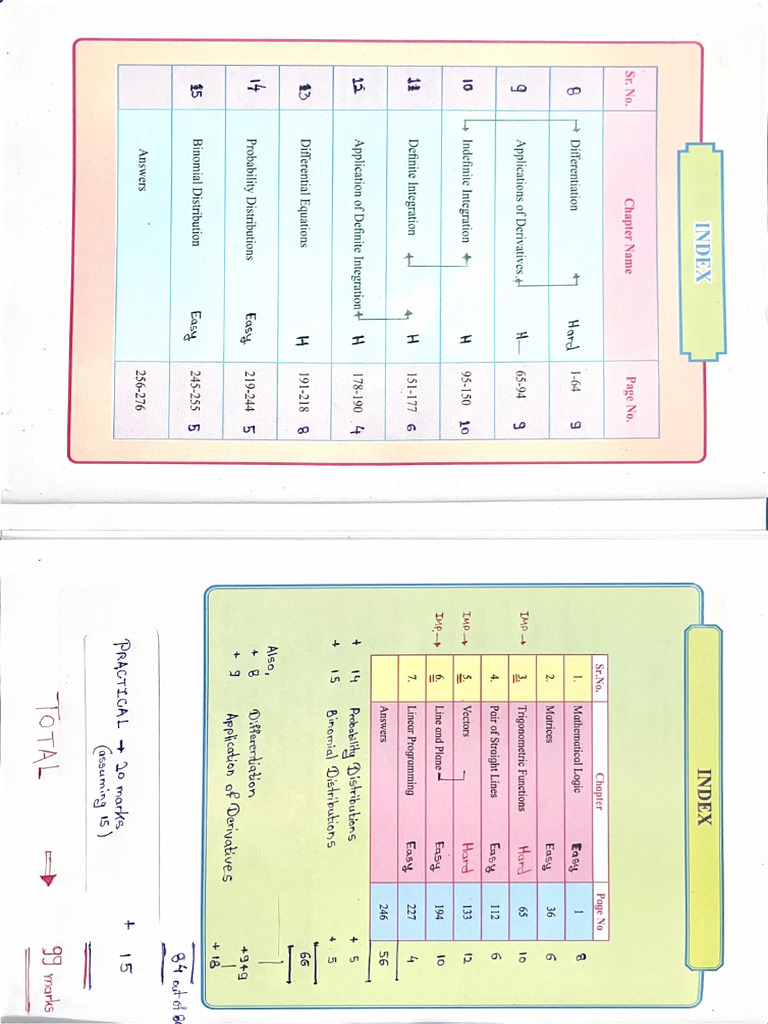 INDEX
Sr. No. Chapter Name Page No.
8 Differentiation Hard 1-64 9
9 Applications of Derivatives H 65-94 9
10 Indefinite Integration H 95-150 10
11 Definite Integration H 151-177 6
12 Application of Definite Integration H 178-190 4
13 Differential Equations H 191-218 8
14 Probability Distributions Easy 219-244 5
15 Binomial Distribution Easy 245-255 5
Answers 256-276
INDEX
Sr.No. Chapter Page No
1. Mathematical Logic Easy 1 8
2. Matrices Easy 36 6
IMP → 3. Trigonometric Functions Hard 65 10
4. Pair of Straight Lines Easy 112 6
IMP → 5. Vectors Hard 133 12
IMP. → 6. Line and Plane Easy 194 10
7. Linear Programming Easy 227 4
Answers 246 56
+ 14 Probability Distributions + 5
+ 15 Binomial Distributions + 5
66
Also,
+ 8 Differentiation +9+9
+ 9 Application of Derivatives + 18
84 out of
PRACTICAL → 20 marks + 15
(assuming 15)
TOTAL → 99 marks